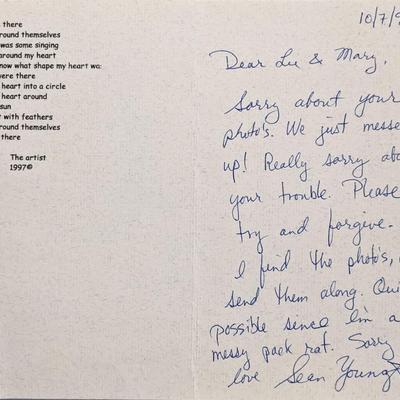 there
round themselves
was some singing
around my heart
now what shape my heart wa:
were there
heart into a circle
heart around
sun
with feathers
round themselves
there
The artist
1997©
10/7/9
Dear Lee & Mary,
Sorry about your
photo's. We just messe
up! Really sorry abo
your trouble. Please
try and forgive.
I find the photo's,
send them along. Qui
possible since I'm a
messy pack rat. Sorry
love Sean Young